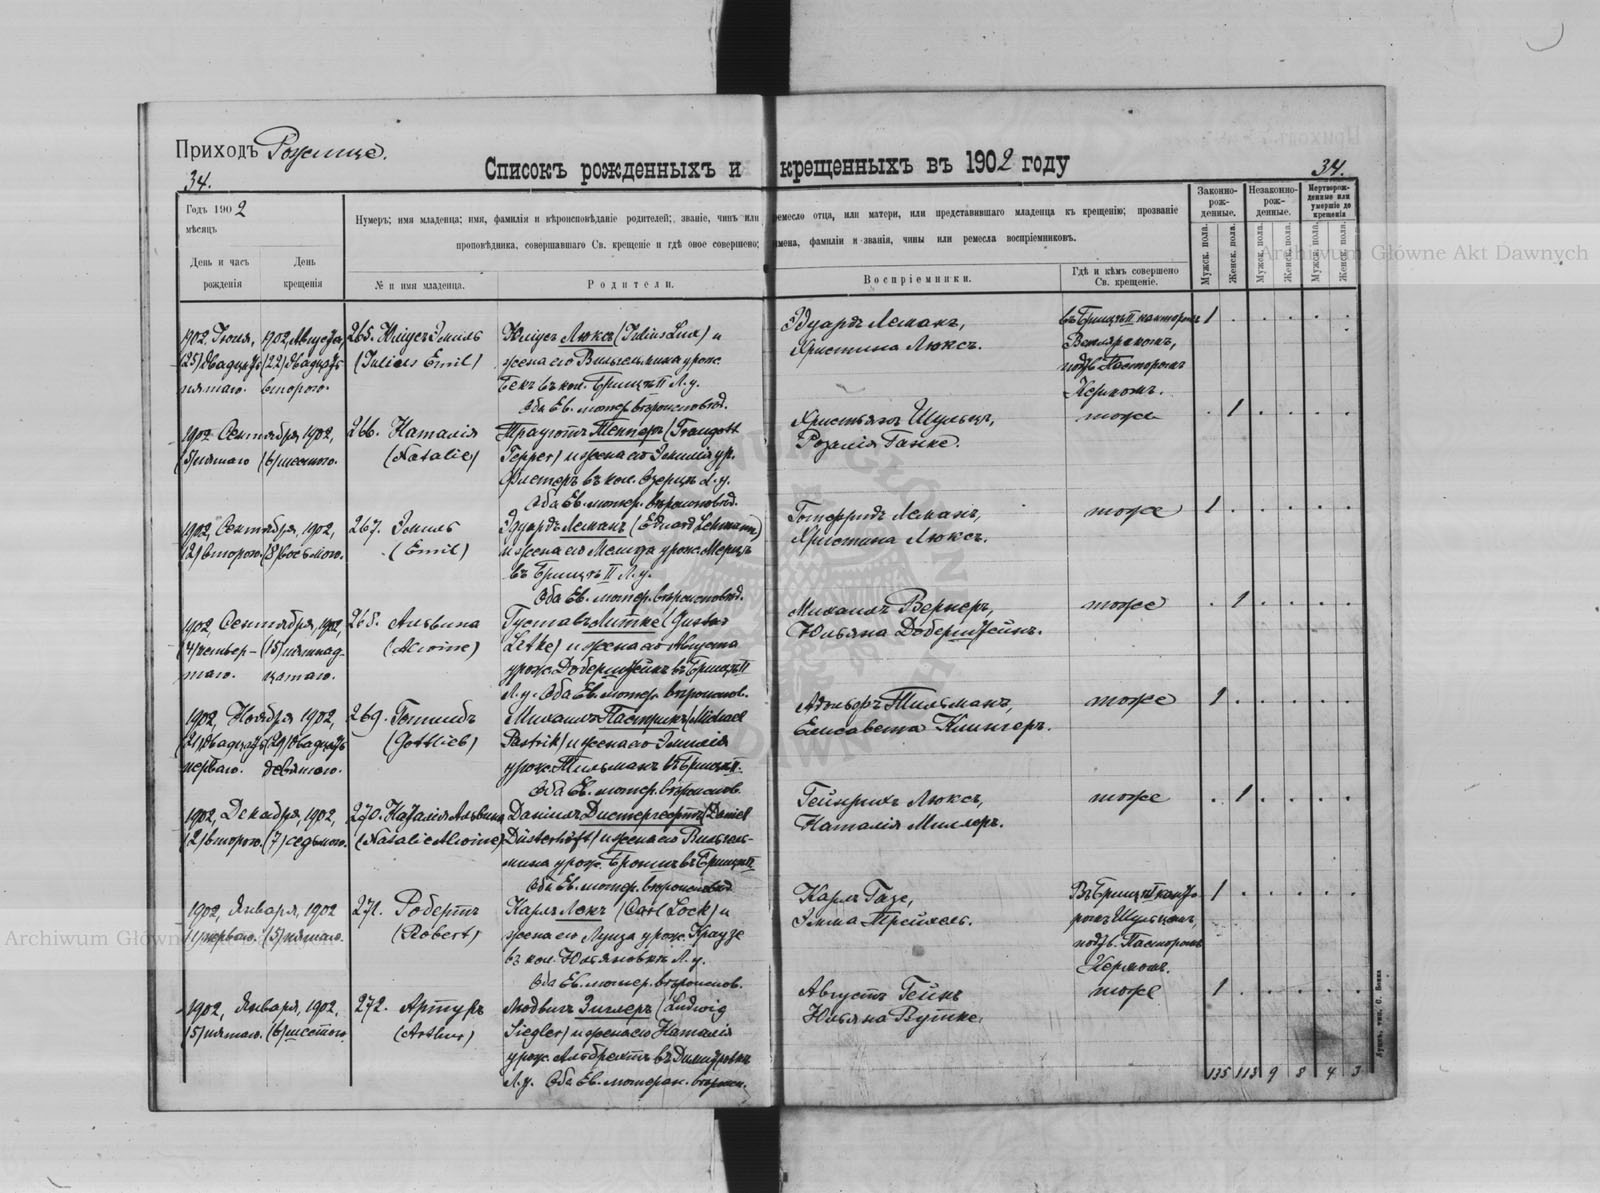 Приходъ Рожище.
34.
Списокъ рожденныхъ и крещенныхъ въ 1902 году
34.
Годъ 1902
мѣсяцъ
День и часъ рожденія
День крещенія
Нумеръ; имя младенца; имя, фамилія и вѣроисповѣданіе родителей; званіе, чинъ или ремесло отца, или матери, или представившаго младенца къ крещенію; прозваніе
проповѣдника, совершавшаго Св. крещеніе и гдѣ оное совершено; имена, фамиліи и званія, чины или ремесла воспріемниковъ.
№ и имя младенца.
Родители.
Воспріемники.
Гдѣ и кѣмъ совершено
Св. крещеніе.
Законно-рож-денные.
Незаконно-рож-денные.
Мертворож-денные или умершіе до крещенія
Мужск. пола.
Женск. пола.
Мужск. пола.
Женск. пола.
Мужск. пола.
Женск. пола.
1902, Іюня,
(25) двадцать
пятаго.
1902, Августа,
(22) двадцать
второго.
265. Юліусъ Эмиль
(Julius Emil)
Юліусъ Люксъ (Julius Lux) и
жена его Вильгельмина урож.
Бекъ въ кол. Брищъ II Л. у.
Оба Ев. лютер. вѣроисповѣд.
Эдуардъ Леманъ,
Христина Люксъ.
въ Брищъ II канторомъ
подтв. Пасторомъ
Керномъ.
1
1902 Сентября, 1902,
(5) пятаго (6) шестого.
266. Наталія
(Natalie)
Трауготъ Тепперъ (Traugott
Tepper) и жена его Эмилія ур.
Фистеръ въ кол. Озерцъ Л. у.
Оба Ев. лютер. вѣроисповѣд.
Христьянъ Шульцъ,
Розалія Ганке.
тоже
1
1902, Сентября, 1902,
(2) второго. (8) восьмого.
267. Эмиль
(Emil)
Эдуардъ Леманъ (Eduard Lehmann)
и жена его Мелида урож. Мерцъ
въ Брищъ II Л. у.
Оба Ев. лютер. вѣроисповѣд.
Готфридъ Леманъ,
Христина Люксъ.
тоже
1
1902, Сентября, 1902,
(4) четвер- (15) пятнад-
таго. цатаго.
268. Альвина
(Alwine)
Густавъ Литке (Gustav
Litke) и жена его Августа
урож. Доберштейнъ въ Брищъ II
Л. у. Оба Ев. лютер. вѣроиспов.
Михаилъ Вернеръ,
Юльяна Доберштейнъ.
тоже
1
1902, Ноября 1902,
(21) двадцать (29) двадцать
перваго. девятаго.
269. Готлибъ
(Gottlieb)
Михаилъ Пастрикъ (Michael
Pastrik) и жена его Эмилія
урож. Тильманъ въ Брищъ II.
Оба Ев. лютер. вѣроиспов.
Адольфъ Тильманъ,
Елисавета Клингеръ.
тоже
1
1902, Декабря, 1902,
(2) второго. (7) седьмого.
270. Наталія Альвина
(Natalie Alwine)
Даніилъ Дистергефтъ (Daniel
Düsterhöft) и жена его Вильгель-
мина урож. Брошъ въ Брищъ II
Оба Ев. лютер. вѣроисповѣд.
Гейнрихъ Люксъ,
Наталія Миллеръ.
тоже
1
1902, Января, 1902
(1) перваго. (5) пятаго.
271. Робертъ
(Robert)
Карлъ Локъ (Carl Lock) и
жена его Луиза урож. Краузе
въ кол. Юльяновкѣ Л. у.
Оба Ев. лютер. вѣроиспов.
Карлъ Газе,
Эмма Трейхель.
Въ Брищъ II канто-
ромъ Шульцомъ,
подтв. Пасторомъ
Керномъ.
1
1902, Января, 1902,
(5) пятаго. (6) шестого.
272. Артуръ
(Arthur)
Людвигъ Зиглеръ (Ludwig
Siegler) и жена его Наталія
урож. Альбрехтъ въ Димитровкѣ
Л. у. Оба Ев. лютеран. вѣроисп.
Августъ Гейнъ
Юльяна Вутке.
тоже
1
135 113 9 8 4 3
Archiwum Główne Akt Dawnych